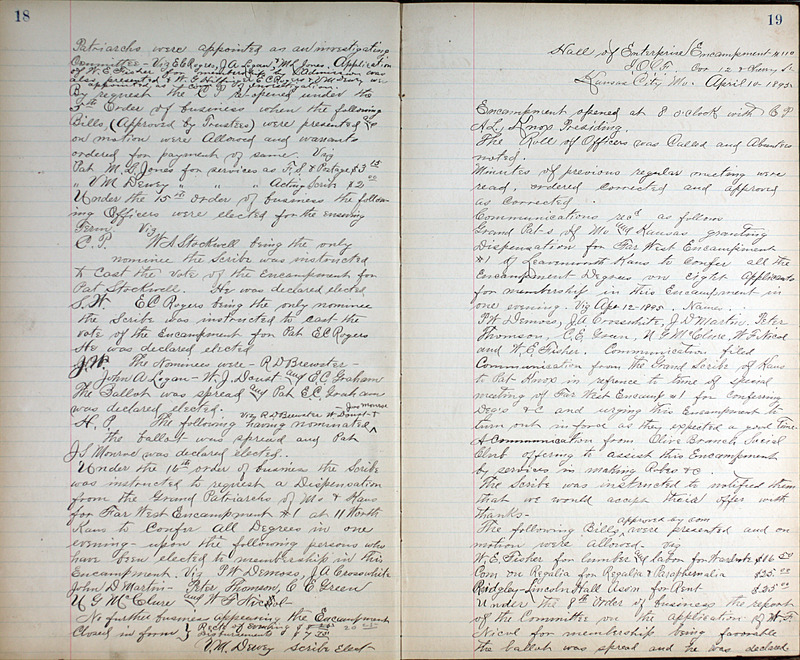 18
Patriarchs were appointed as an investigating
Committee - Viz E C Rogers, J. A. Logan & M L Jones. Application
of W. E. Fisher for membership by was
also presented & E C Rogers & Dewey were
appointed as of investigation.
By request the C. P. Suspened under the
9th Order of business when the following
Bills, (Approved by Trustees) were presented and
on motion were Allowed and warrants
ordered for payment of same. Viz
Pat M. L. Jones for services as F. S. & Postage $3 15
" V. M Dewey " " " Acting Scribe $2 00
Under the 15th order of business the follow-
ing Officers were elected for the ensuing
Term. Viz
C. P. W A Stockwell being the only
nominee the Scribe was instructed
to cast the vote of the Encampment for
Pat Stockwell. He was declared elected
S. W. E C Rogers being the only nominee
the Scribe was instructed to cast the
vote of the Encampment for Pat E C Rogers
He was declared elected
J. W. The Nominees were - R D Brewster -
John A. Logan - W. J. Doust and E. C. Graham
The Ballot was spread and Pat E. C. Graham
was declared elected.
H. P. The following having nominated Viz R. D Brewster W. Doust & Jas Monroe
the ballot was spread and Pat
J S Monroe was declared elected..
Under the 16th order of business the Scribe
was instructed to request a Dispensation
from the Grand Patriarchs of Mo & Kans
for Far West Encampment #1 at 11 Worth
Kans to Confer All Degrees in one
evening - upon the following persons who
have been elected to membership in this
Encampment. Viz P. W Demoss, J. A Crosswhite
John D. Martin - Peter Thomson, C. E Green
U G McClure and W F Nicol
No further business appearing the Encampment
Closed in form } Recpts of evening $
Disbursements $
V. M. Dewey Scribe Elect
19
Hall of Enterprise Encampment #110
I. O. O. F. Cor 12 & Henry St
Kansas City Mo. April 10-1895.
Encampment opened at 8 o'clock with C P
N. L. Knox Presiding.
The Roll of Officers was Called and Absentees
noted.
Minutes of previous regular meeting were
read, ordered corrected and approved
as corrected.
Communications rec'd as follow
Grand Pat-s of Mo and Kansas granting
Dispensation for Far West Encampment
#1 of Leavenworth Kans to Confer all the
Encampment Degrees on Eight Applicants
for membership in this Encampment in
one evening. Viz Apr 12-1895. Names.
P W Demoss, J. A Crosswhite, J. D Martin, Peter
Thomson, C. E. Green, U. G. McClure, W. F Nicol
and W. E. Fisher. Communication filed
Communication from the Grand Scribe of Kans
to Pat Knox in refrence to time of special
meeting of Far West Encamp #1 for Conferring
Deg's &c and urging this Encampment to
turn out in force as they expected a good time.
A Communication from Olive Branch Social
Club offering to assist this Encampment
by services in making Robes &c.
The Scribe was instructed to notified them
that we would accept their offer with
thanks-
The following Bills approved by com were presented and on
motion were allowed viz
W. E. Fisher for lumber and labor for Wardrobe $16 50
Com on Regalia for Regalia & Paraphernalia $25 00
Ridgley-Lincoln Hall Assn for Rent $25 00
Under the 8th Order of business the report
of the Committee on the application of W. F.
Nicol for membership being favorable
the ballot was spread and he was declared